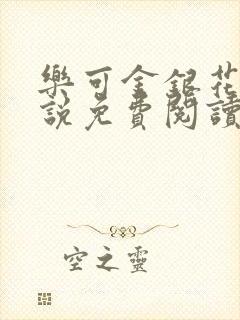 樂可金銀花
說免費閱讀
空之靈